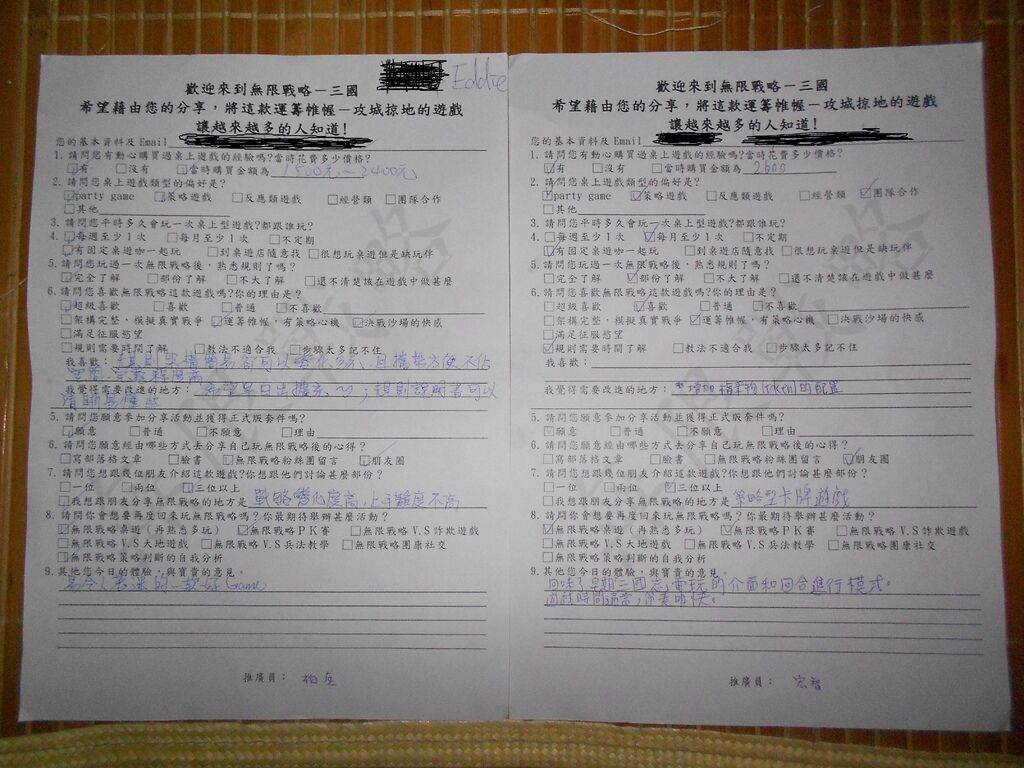 Eddie
歡迎來到無限戰略－三國
希望藉由您的分享，將這款運籌帷幄－攻城掠地的遊戲
讓越來越多的人知道!
您的基本資料及 Email
1. 請問您有動心購買過桌上遊戲的經驗嗎?當時花費多少價格?
□有 □沒有 □當時購買金額為 1500元~2400元
2. 請問您桌上遊戲類型的偏好是?
□party game □策略遊戲 □反應類遊戲 □經營類 □團隊合作
□其他
3. 請問您平時多久會玩一次桌上型遊戲?都跟誰玩?
4. □每週至少1次 □每月至少1次 □不定期
□有固定桌遊咖一起玩 □到桌遊店隨意找 □很想玩桌遊但是缺玩伴
5. 請問您玩過一次無限戰略後，熟悉規則了嗎？
□完全了解 □部份了解 □不大了解 □還不清楚該在遊戲中做甚麼
6. 請問您喜歡無限戰略這款遊戲嗎?你的理由是?
□超級喜歡 □喜歡 □普通 □不喜歡
□架構完整，模擬真實戰爭 □運籌帷幄，有策略心機 □決戰沙場的快感
□滿足征服慾望
□規則需要時間了解 □教法不適合我 □步驟太多記不住
我喜歡：
我覺得需要改進的地方： 希望早日出擴充 ；規則說明書可以
清晰易懂些
5. 請問您願意參加分享活動並獲得正式版套件嗎?
□願意 □普通 □不願意 □理由
6. 請問您願意經由哪些方式去分享自己玩無限戰略後的心得？
□寫部落格文章 □臉書 □無限戰略粉絲團留言 □朋友圈
7. 請問您想跟幾位朋友介紹這款遊戲?你想跟他們討論甚麼部份?
□一位 □兩位 □三位以上
□我想跟朋友分享無限戰略的地方是 戰略變化度高，上手難度不高
8. 請問你會想要再度回來玩無限戰略嗎?你最期待舉辦甚麼活動?
□無限戰略桌遊(再熟悉多玩) □無限戰略PK賽 □無限戰略V.S詐欺遊戲
□無限戰略V.S大地遊戲 □無限戰略V.S兵法教學 □無限戰略團康社交
□無限戰略策略判斷的自我分析
9. 其他您今日的體驗，與寶貴的意見。
Game
推廣員：
歡迎來到無限戰略－三國
希望藉由您的分享，將這款運籌帷幄－攻城掠地的遊戲
讓越來越多的人知道!
您的基本資料及 Email
1. 請問您有動心購買過桌上遊戲的經驗嗎?當時花費多少價格?
□有 □沒有 □當時購買金額為 2600
2. 請問您桌上遊戲類型的偏好是?
□party game □策略遊戲 □反應類遊戲 □經營類 □團隊合作
□其他
3. 請問您平時多久會玩一次桌上型遊戲?都跟誰玩?
4. □每週至少1次 □每月至少1次 □不定期
□有固定桌遊咖一起玩 □到桌遊店隨意找 □很想玩桌遊但是缺玩伴
5. 請問您玩過一次無限戰略後，熟悉規則了嗎？
□完全了解 □部份了解 □不大了解 □還不清楚該在遊戲中做甚麼
6. 請問您喜歡無限戰略這款遊戲嗎?你的理由是?
□超級喜歡 □喜歡 □普通 □不喜歡
□架構完整，模擬真實戰爭 □運籌帷幄，有策略心機 □決戰沙場的快感
□滿足征服慾望
□規則需要時間了解 □教法不適合我 □步驟太多記不住
我喜歡：
我覺得需要改進的地方： 增加 token的配置
5. 請問您願意參加分享活動並獲得正式版套件嗎?
□願意 □普通 □不願意 □理由
6. 請問您願意經由哪些方式去分享自己玩無限戰略後的心得？
□寫部落格文章 □臉書 □無限戰略粉絲團留言 □朋友圈
7. 請問您想跟幾位朋友介紹這款遊戲?你想跟他們討論甚麼部份?
□一位 □兩位 □三位以上
□我想跟朋友分享無限戰略的地方是 策略型卡牌遊戲
8. 請問你會想要再度回來玩無限戰略嗎?你最期待舉辦甚麼活動?
□無限戰略桌遊(再熟悉多玩) □無限戰略PK賽 □無限戰略V.S詐欺遊戲
□無限戰略V.S大地遊戲 □無限戰略V.S兵法教學 □無限戰略團康社交
□無限戰略策略判斷的自我分析
9. 其他您今日的體驗，與寶貴的意見。
回味了早期三國志電玩的介面和回合進行模式。
時間適當，節奏明快。
推廣員： 宏智